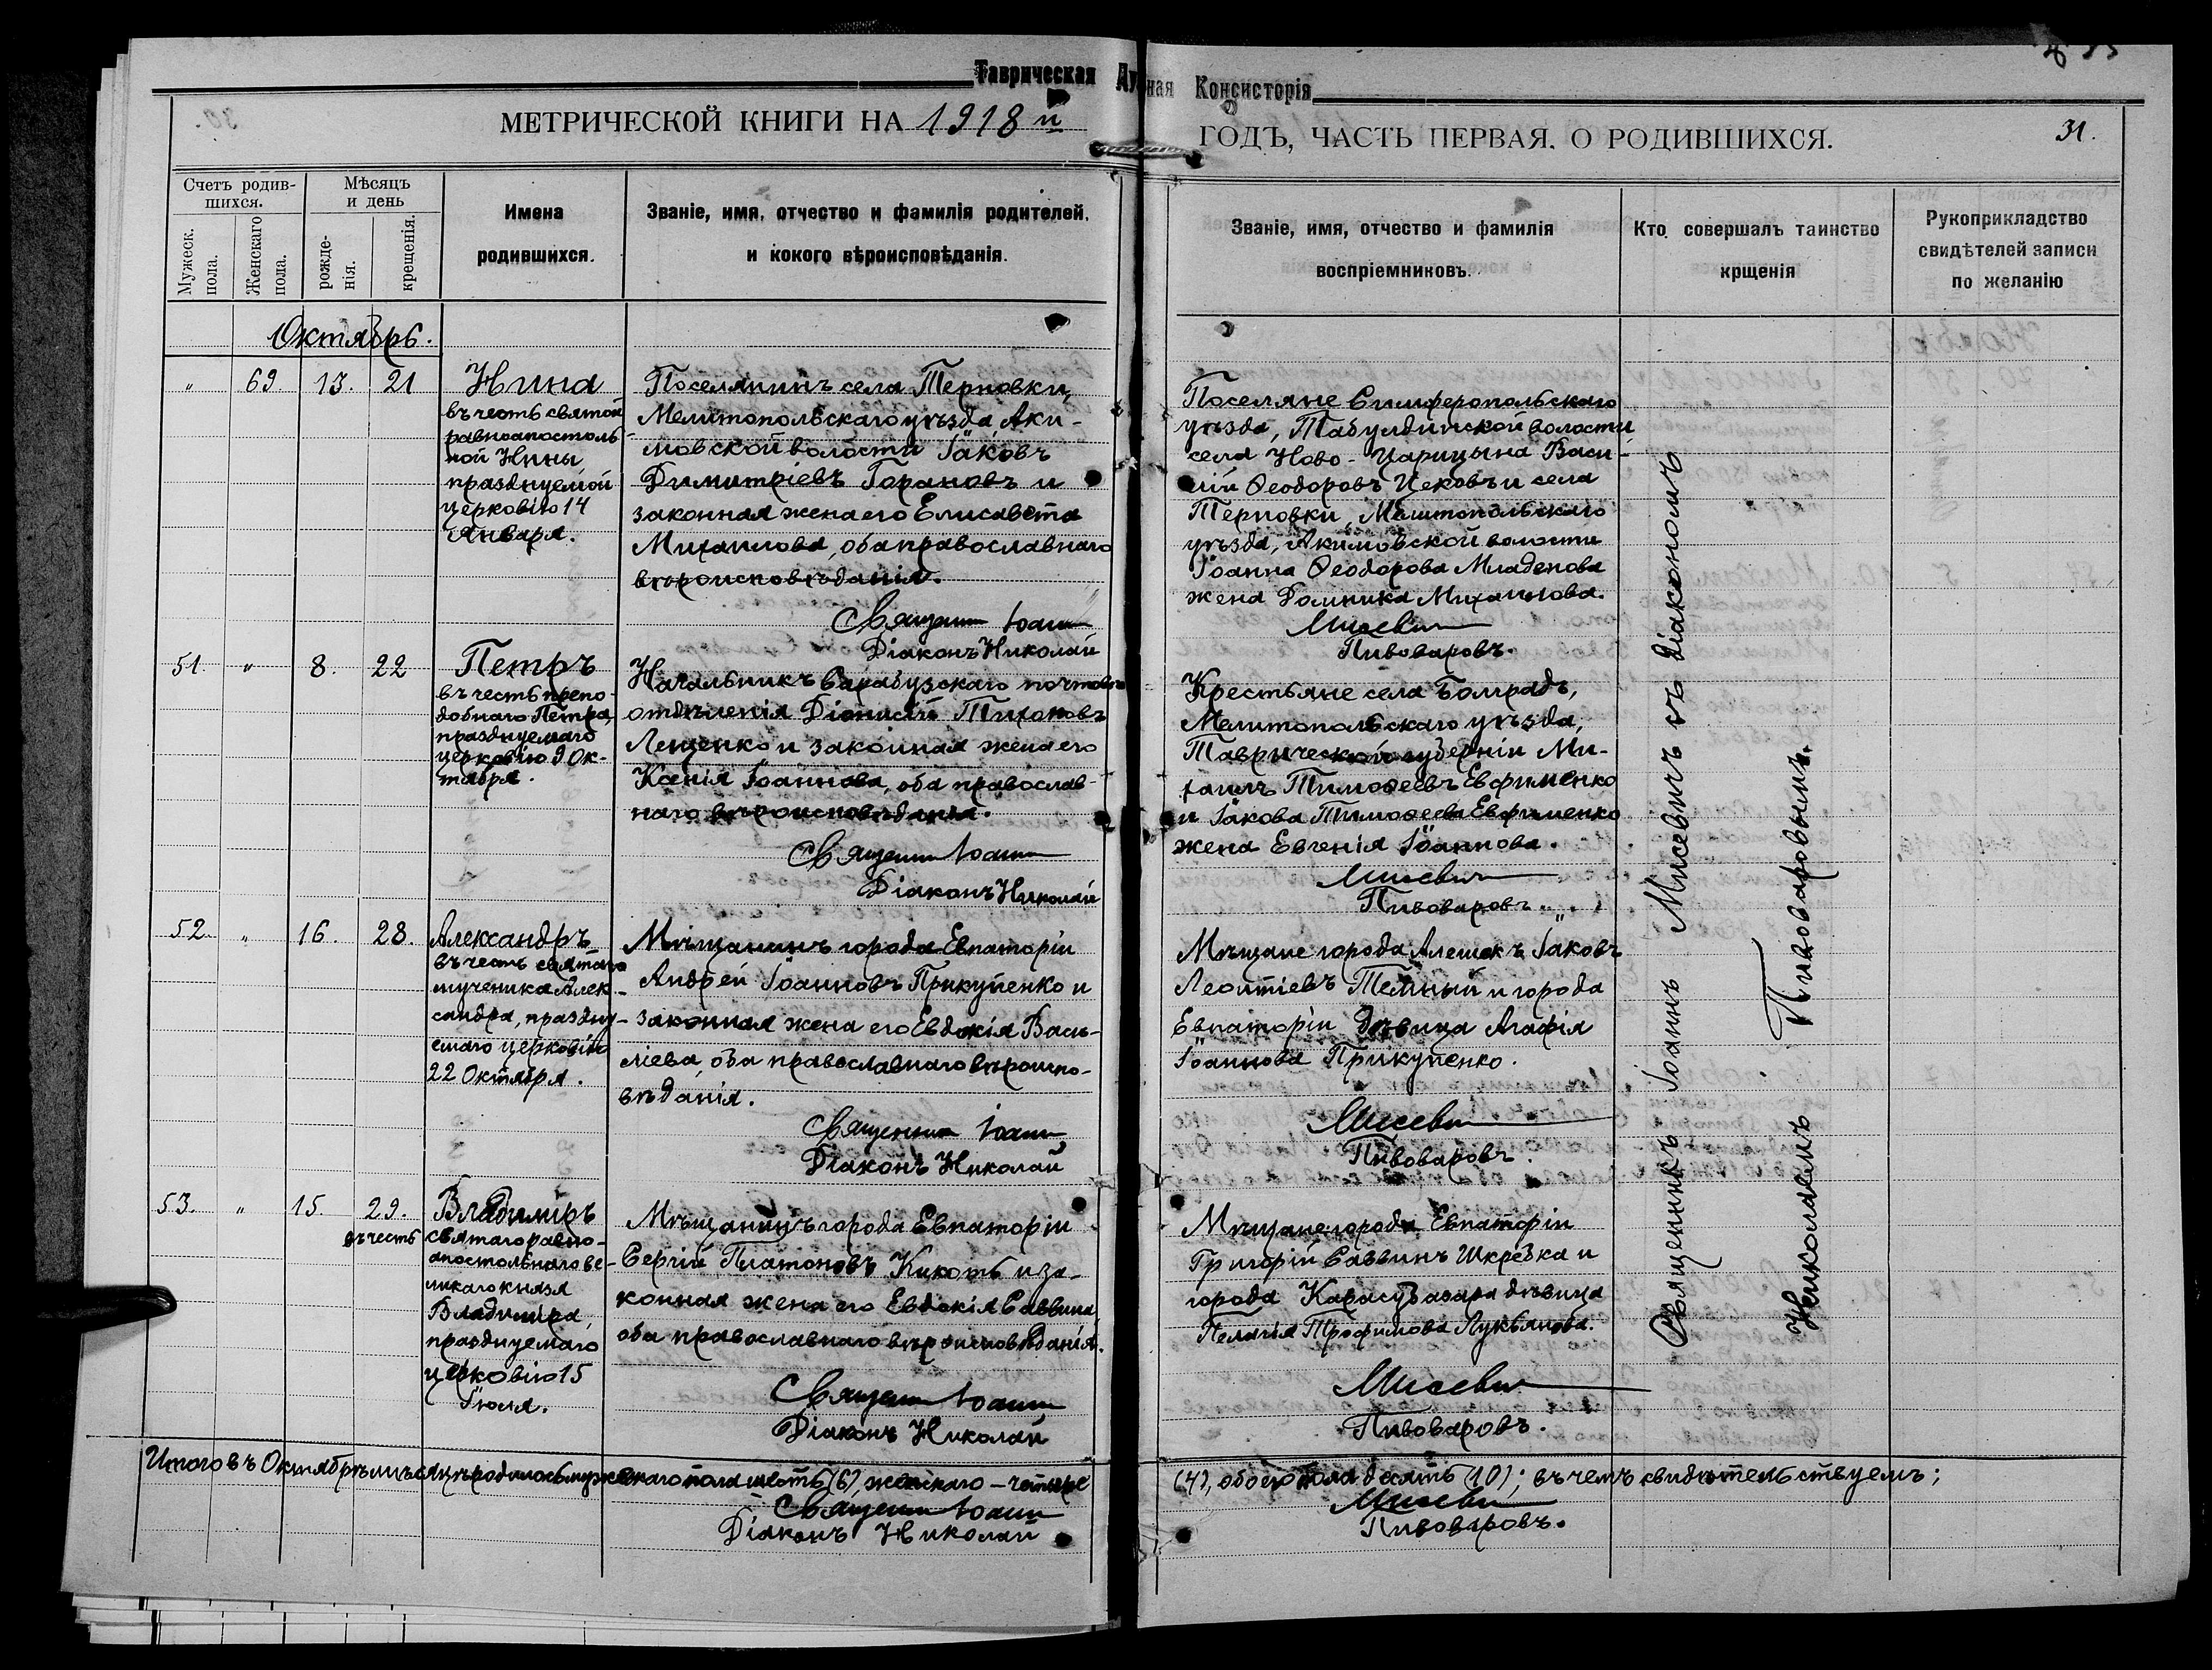 Таврическая Духовная Консисторія
МЕТРИЧЕСКОЙ КНИГИ НА 1918 й
ГОДЪ, ЧАСТЬ ПЕРВАЯ, О РОДИВШИХСЯ.
31.
Счетъ родив-
шихся.
Мѣсяцъ
и день
Мужеск.
пола.
Женскаго
пола.
рожде-
нія.
крещенія.
Имена
родившихся.
Званіе, имя, отчество и фамилія родителей,
и кокого вѣроисповѣданія.
Званіе, имя, отчество и фамилія
воспріемниковъ.
Кто совершалъ таинство
крщенія
Рукоприкладство
свидѣтелей записи
по желанію
Октябрь.
" 69. 13. 21
Нина
въ честь святой
равноапостоль-
ной Нины,
празднуемой
церковію 14
Января.
Поселянинъ села Терновки,
Мелитопольскаго уѣзда Аки-
мовской волости Іаковъ
Димитріевъ Горановъ и
законная жена его Елисавета
Михаилова, оба православнаго
вѣроисповѣданія.
Священник Іоанн
Діаконъ Николай
Поселяне Симферопольскаго
уѣзда, Табулдинской волости
села Ново-Царицына Васи-
лій Ѳеодоровъ Цековъ и села
Терновки, Мелитопольскаго
уѣзда, Акимовской волости
Іоанна Ѳеодорова Младенова
жена Домника Михаилова.
Мисевич
Пивоваровъ.
51. " 8. 22
Петръ
въ честь препо-
добнаго Петра,
празднуемаго
церковію 9 Ок-
тября.
Начальникъ Сарабузскаго почтоваго
отдѣленія Діонисій Тихоновъ
Лещенко и законная жена его
Ксенія Іоаннова, оба православ-
наго вѣроисповѣданія.
Священник Іоанн
Діаконъ Николай
Крестьяне села Болградъ,
Мелитопольскаго уѣзда,
Таврической губерніи Ми-
хаилъ Тимоѳеевъ Евфименко
и Іакова Тимоѳеева Евфименко
жена Евгенія Іоаннова.
Мисевич
Пивоваровъ.
52. " 16. 28.
Александръ
въ честь святаго
мученика Алек-
сандра, праздну-
емаго церковію
22 Октября.
Мѣщанинъ города Евпаторіи
Андрей Іоанновъ Прикупенко и
законная жена его Евдокія Васи-
ліева, оба православнаго вѣроиспо-
вѣданія.
Священник Іоанн
Діаконъ Николай
Мѣщане города Алешекъ Іаковъ
Леонтіевъ Темный и города
Евпаторіи дѣвица Агафія
Іоаннова Прикупенко.
Мисевич
Пивоваровъ.
53. " 15. 29.
Владиміръ
въ честь святаго равно-
апостольнаго ве-
ликаго князя
Владиміра,
празднуемаго
церковію 15
Іюля.
Мѣщанинъ города Евпаторіи
Сергій Платоновъ Кикоть и за-
конная жена его Евдокія Саввина,
оба православнаго вѣроисповѣданія.
Священник Іоанн
Діаконъ Николай
Мѣщане города Евпаторіи
Григорій Саввинъ Шкребка и
города Карасубазара дѣвица
Пелагія Трофимова Лукьянова.
Мисевич
Пивоваровъ.
Священникъ Іоаннъ Мисевичъ съ діакономъ
Николаемъ Пивоваровымъ.
Итого въ Октябрѣ мѣсяцѣ родилось мужескаго пола шесть (6), женскаго – четыре
(4), обоего пола десять (10); въ чемъ свидѣтельствуемъ:
Священник Іоанн Мисевич
Діаконъ Николай Пивоваровъ.